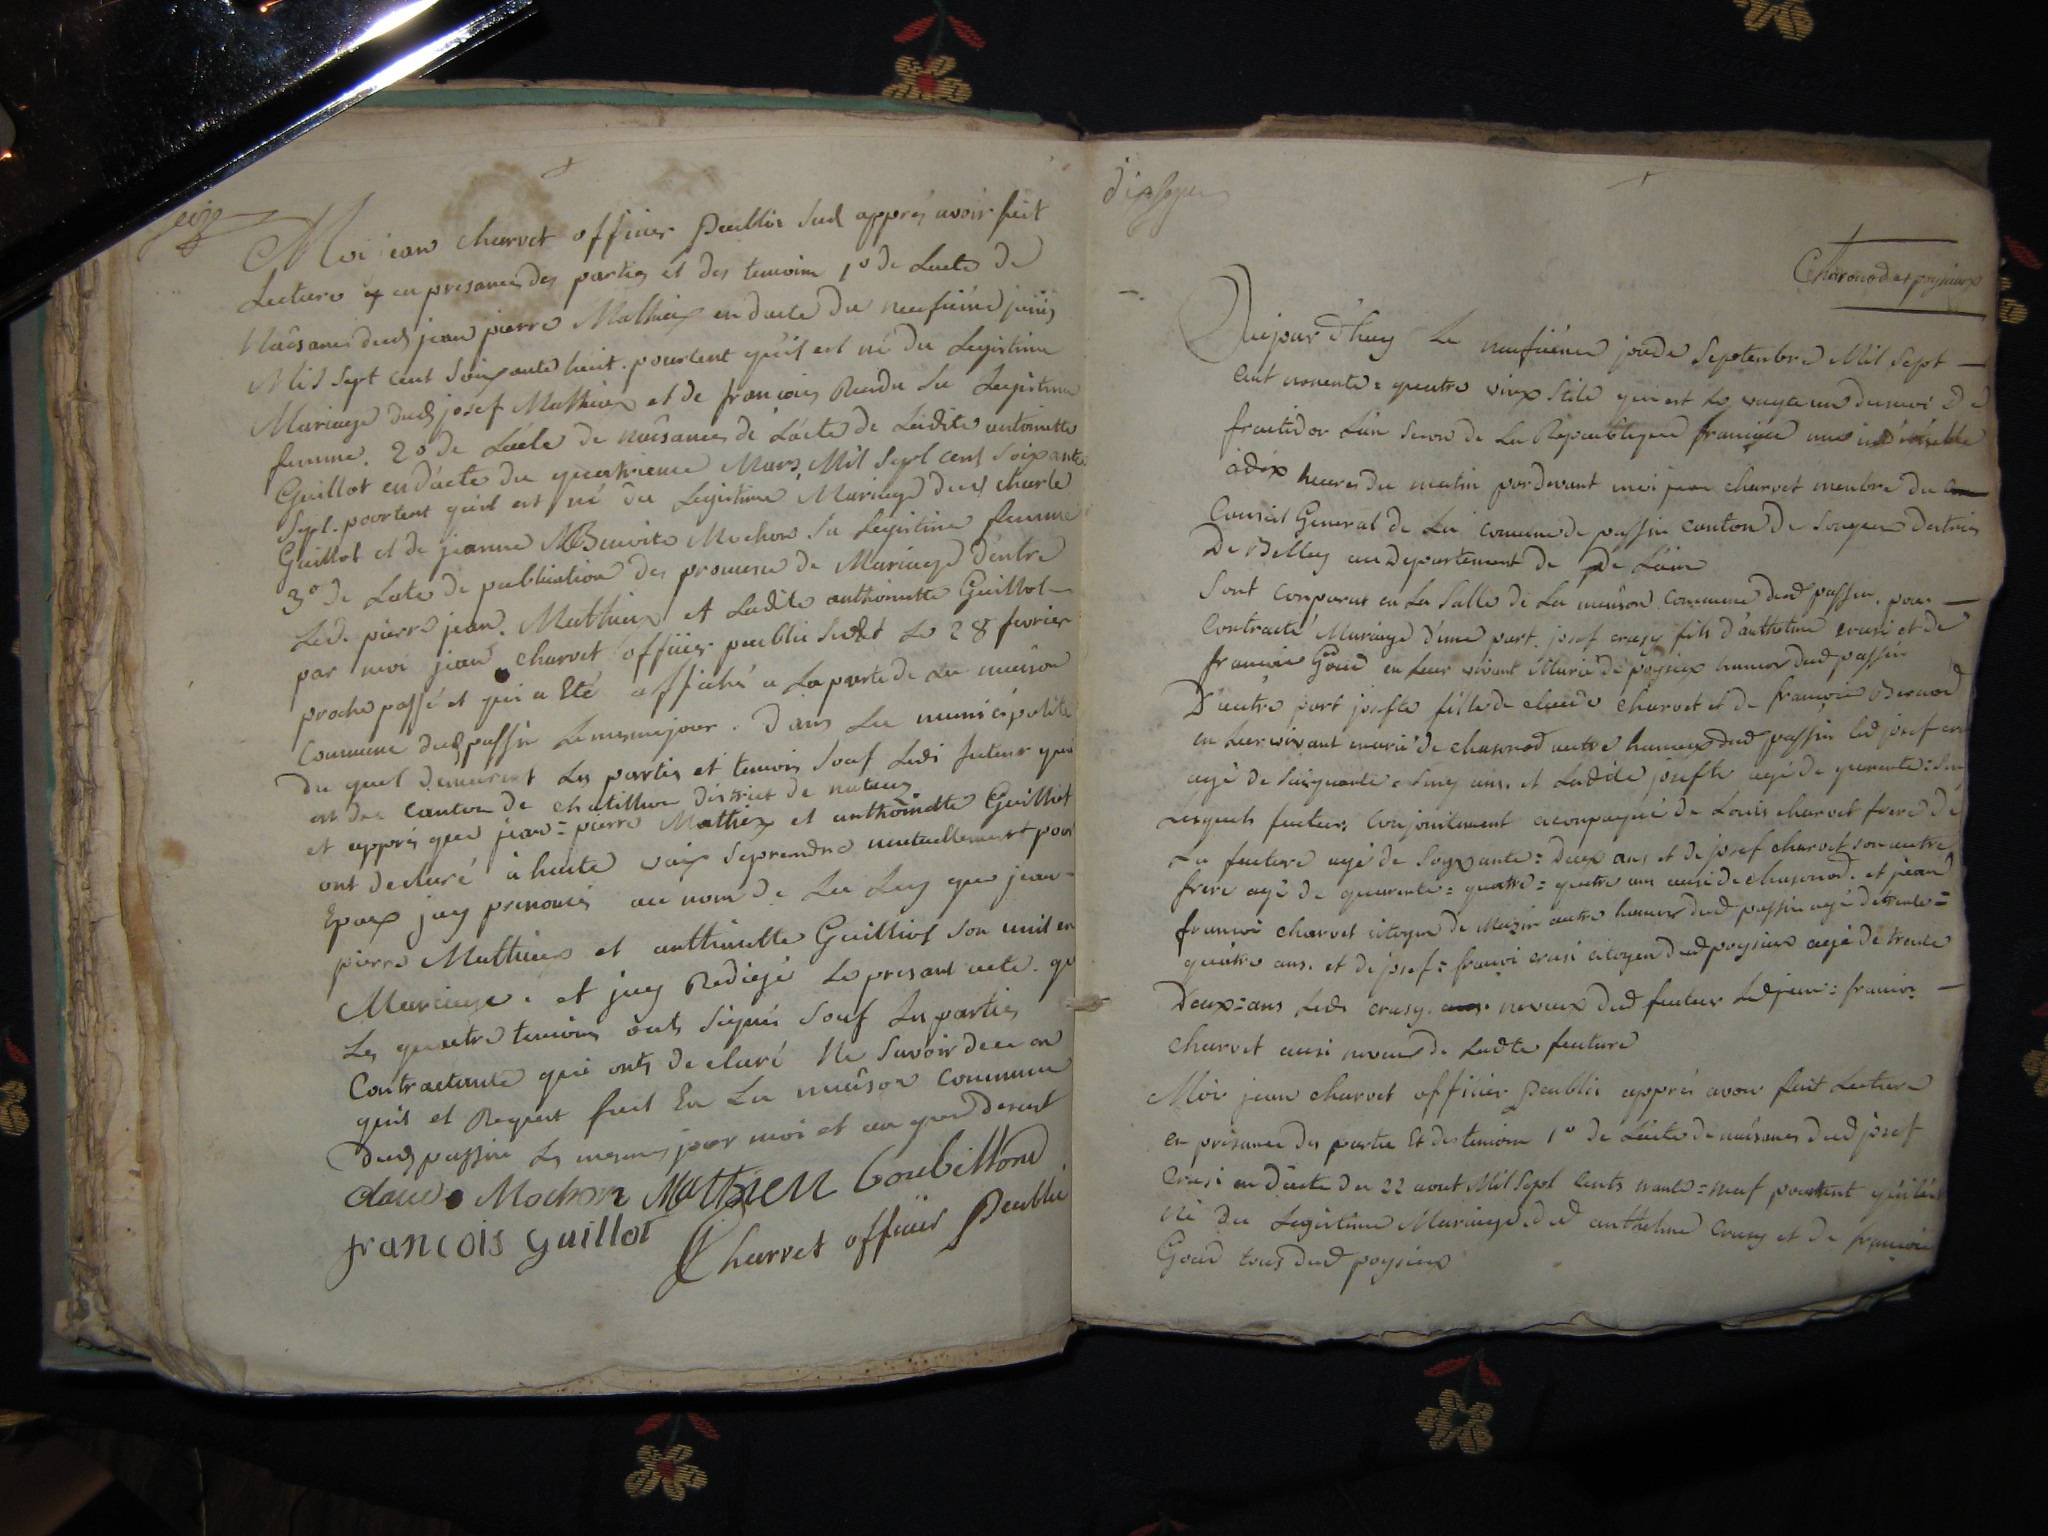 Moi jean charvet officier Publis sud apprés avoir feit
Lecture en presance des parties et des temoins 1º de Lacte de
Naisance dud jean pierre Mathieu en dacte du neufiéme juin
Mil sept cent soixante huit. pourtent qu'il est né du Legistime
Mariage dud josef Mathieux et de francois Rendu sa Legistime
femme. 2º de Lacte de naisance de Lacte de Ladite antoinette
Guillot en dacte du quatrieme Mars Mil sept cent soixante
sept. pourtent qu'il est né du Legistime Mariage dud charle
Guillot et de jeanne Benoite Mochon sa Legistime femme
3º de Late de publication des promese de Mariage dentre
Led. pierre jean. Mathieux et Ladite anthoinette Guillot
par moi jean charvet officier publis sudt Le 28 fevrier
proche passé et qui a Eté affiché a La porte de La maison
Commune dud passin Le meme jour. dans La municipalité
du quel demeurent Les partis et temoin souf Ledi futeur qui
est du Canton de chatillion district de nuteus
et apprés que jean=pierre Mathieu et anthoinette Guilliot
ont declaré à haute voix seprendre mutuellement pour
Epoux jay prenoncés au nom de La Loy que jean=
pierre Mathieux et anthinette Guilliot son unit en
Mariage. et jay Rediejé Le presant acte. que
Les quatre temoins onts signés souf Les parties
Contractante qui onts declaré Ne savoir dece en
quis et Requert fait En La maison Commune
Dud passin Les mesmes jour moi et an que desus
claude Mochon Mathieu Coubillond
françois guillot Charvet officier Peublis
dixsept
Charonod et poysieux
Aujourd'huy Le neufiéme jour de Septenbre Mil sept
cent nonente=quatre vieux stile qui est Le vingte un du moi de
fruitidor Lan second de La Republique francaise une indivisible
à dix heures du matin pordevant moi jean charvet menbre du
Conseil General de La comune de passin canton de Songieu destrict
De Belley au Departement de de Lain
Sont conparus en La salle de La maison Commune dud passin. pour
Contracté Mariage d'une part. josef crusy fils d'anthelme crusi et de
francoise Goud en Leur vivant Marié de poysieux hameau dud passin
D'autre part josefte fille de claude charvet et de francoise Bernod
en Leur vivant marié de chasonod autre hameau dud passin led josef
agé de Cinquante=cinq ans. et Ladite josefte agé de quarente=
Lesquels futeurs Conjointement acompagné de Louis charvet frere de
La future agé de soyxante=deux ans et de josef charvet son autre
frere agé de quarente=quatre= quatre ans ausi de chasonod. et jean
francoi charvet citoyen de Mazin autre hameau dud passin agé de trente=
quatre ans. et de josef=francoi crusi citoyen dud poysieux agé de trente
Deux=ans Ledi crusy. neveux dud futeur Led jean=francoi
charvet ausi neveu de Ladte future
Moi jean charvet officier Peublis apprés avoir fait Lecture
en presance des partie Et des temoin 1º de Lacte de naisance dud josef
Crusi en Dacte du 22 aout Mil Sept Cents trante=neuf pourtent qu'il est
né du Legistime Mariage dud anthelme Crusy et de francoise
Goud tous dud poysieux